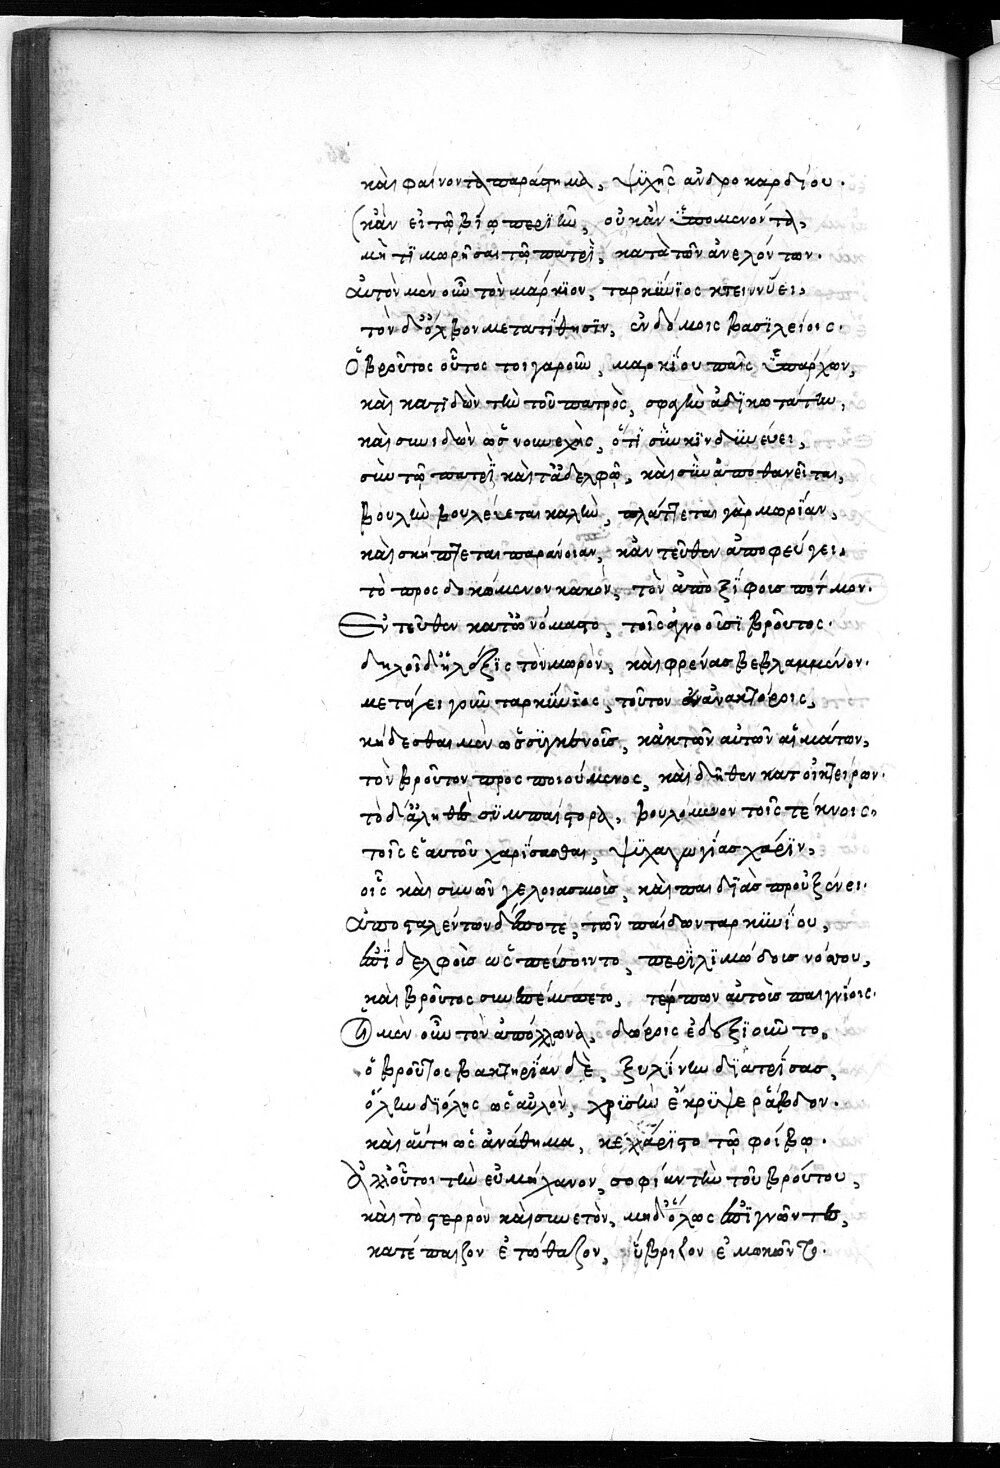 καὶ φαίνονται παράσημα, ψυχῆς ἀνδροκαρδίου.
κἂν εἰ τῷ βίῳ περιῆν, οὐκ ἂν ὑπομενόντα,
μὴ τιμωρῆσαι τῷ πατρὶ, κατὰ τῶν ἀνελόντων.
Αὐτὸν μὲν οὖν τὸν μάρκιον, ταρκύνιος κτειννύει,
τὸν δ' ὄλβον μετατίθησιν, ἐν δόμοις βασιλείοις.
Ὁ βροῦτος οὗτος τοιγαροῦν, μαρκίου παῖς ὑπάρχων,
καὶ κατιδὼν τὴν τοῦ πατρὸς, σφαγὴν ἀδικωτάτην,
καὶ συνιδὼν ὡς νουνεχὴς, ὅτι συγκινδυνεύει,
σὺν τῷ πατρὶ καὶ τἀδελφῷ, καὶ συναποθανεῖται,
βουλὴν βουλεύεται καλὴν, πλάττεται γὰρ μωρίαν,
καὶ σκήπτεται παράνοιαν, κἀντεῦθεν ἀποφεύγει.
τὸ προσδοκώμενον κακὸν, τὸν ἀπὸ ξίφους πότμον.
Ἐντεῦθεν κατωνόμαστο, τοῖς ἀγνοοῦσι βροῦτος.
δηλοῖ δ' ἡ λέξις τὸν μωρὸν, καὶ φρένας βεβλαμμένον.
μετάγει γοῦν ταρκύνιος, τοῦτον ἐν ἀνακτόροις,
κήδεσθαι μὲν ὡς συγγενοῦς, κἀκ τῶν αὐτῶν αἱμάτων,
τὸν βροῦτον προσποιούμενος, καὶ δῆθεν κατοικτείρων.
τὸ δ' ἀληθὲς συμπαίστορα, βουλόμενον τοῖς τέκνοις.
τοῖς ἑαυτοῦ χαρίσασθαι, ψυχαγωγίας χάριν,
οἷς καὶ συνῶν γελοιασμοὺς, καὶ παιδιὰς προὐξένει.
Ἀποσταλέντων δέποτε, τῶν παίδων ταρκυνίου,
ἐπὶ δελφοὺς ὡς πείσοιντο, περὶ λιμώδους νόσου,
καὶ βροῦτος συνεπέμπετο, τέρπων αὐτοὺς παιγνίοις.
Οἱ μὲν οὖν τὸν ἀπόλλωνα, δώροις ἐδεξιοῦντο,
ὁ βροῦτος βακτηρίαν δὲ, ξυλίνην διατρίσας,
ὅλην διόλης ὡς αὐλὸν, χρυσῆν ἔκρυψε ῥάβδον.
καὶ αὕτη ὡς ἀνάθημα, κεχάριστο τῷ φοίβῳ.
Ἀλλ' οὗτοι τὴν εὐμήχανον, σοφίαν τὴν τοῦ βρούτου,
καὶ τὸ στερρὸν καὶ συνετὸν, μηδ' ὅλως ἐπιγνῶντες,
κατέπαιζον ἐτώθαζον, ὕβριζον ἐμωκῶντο.